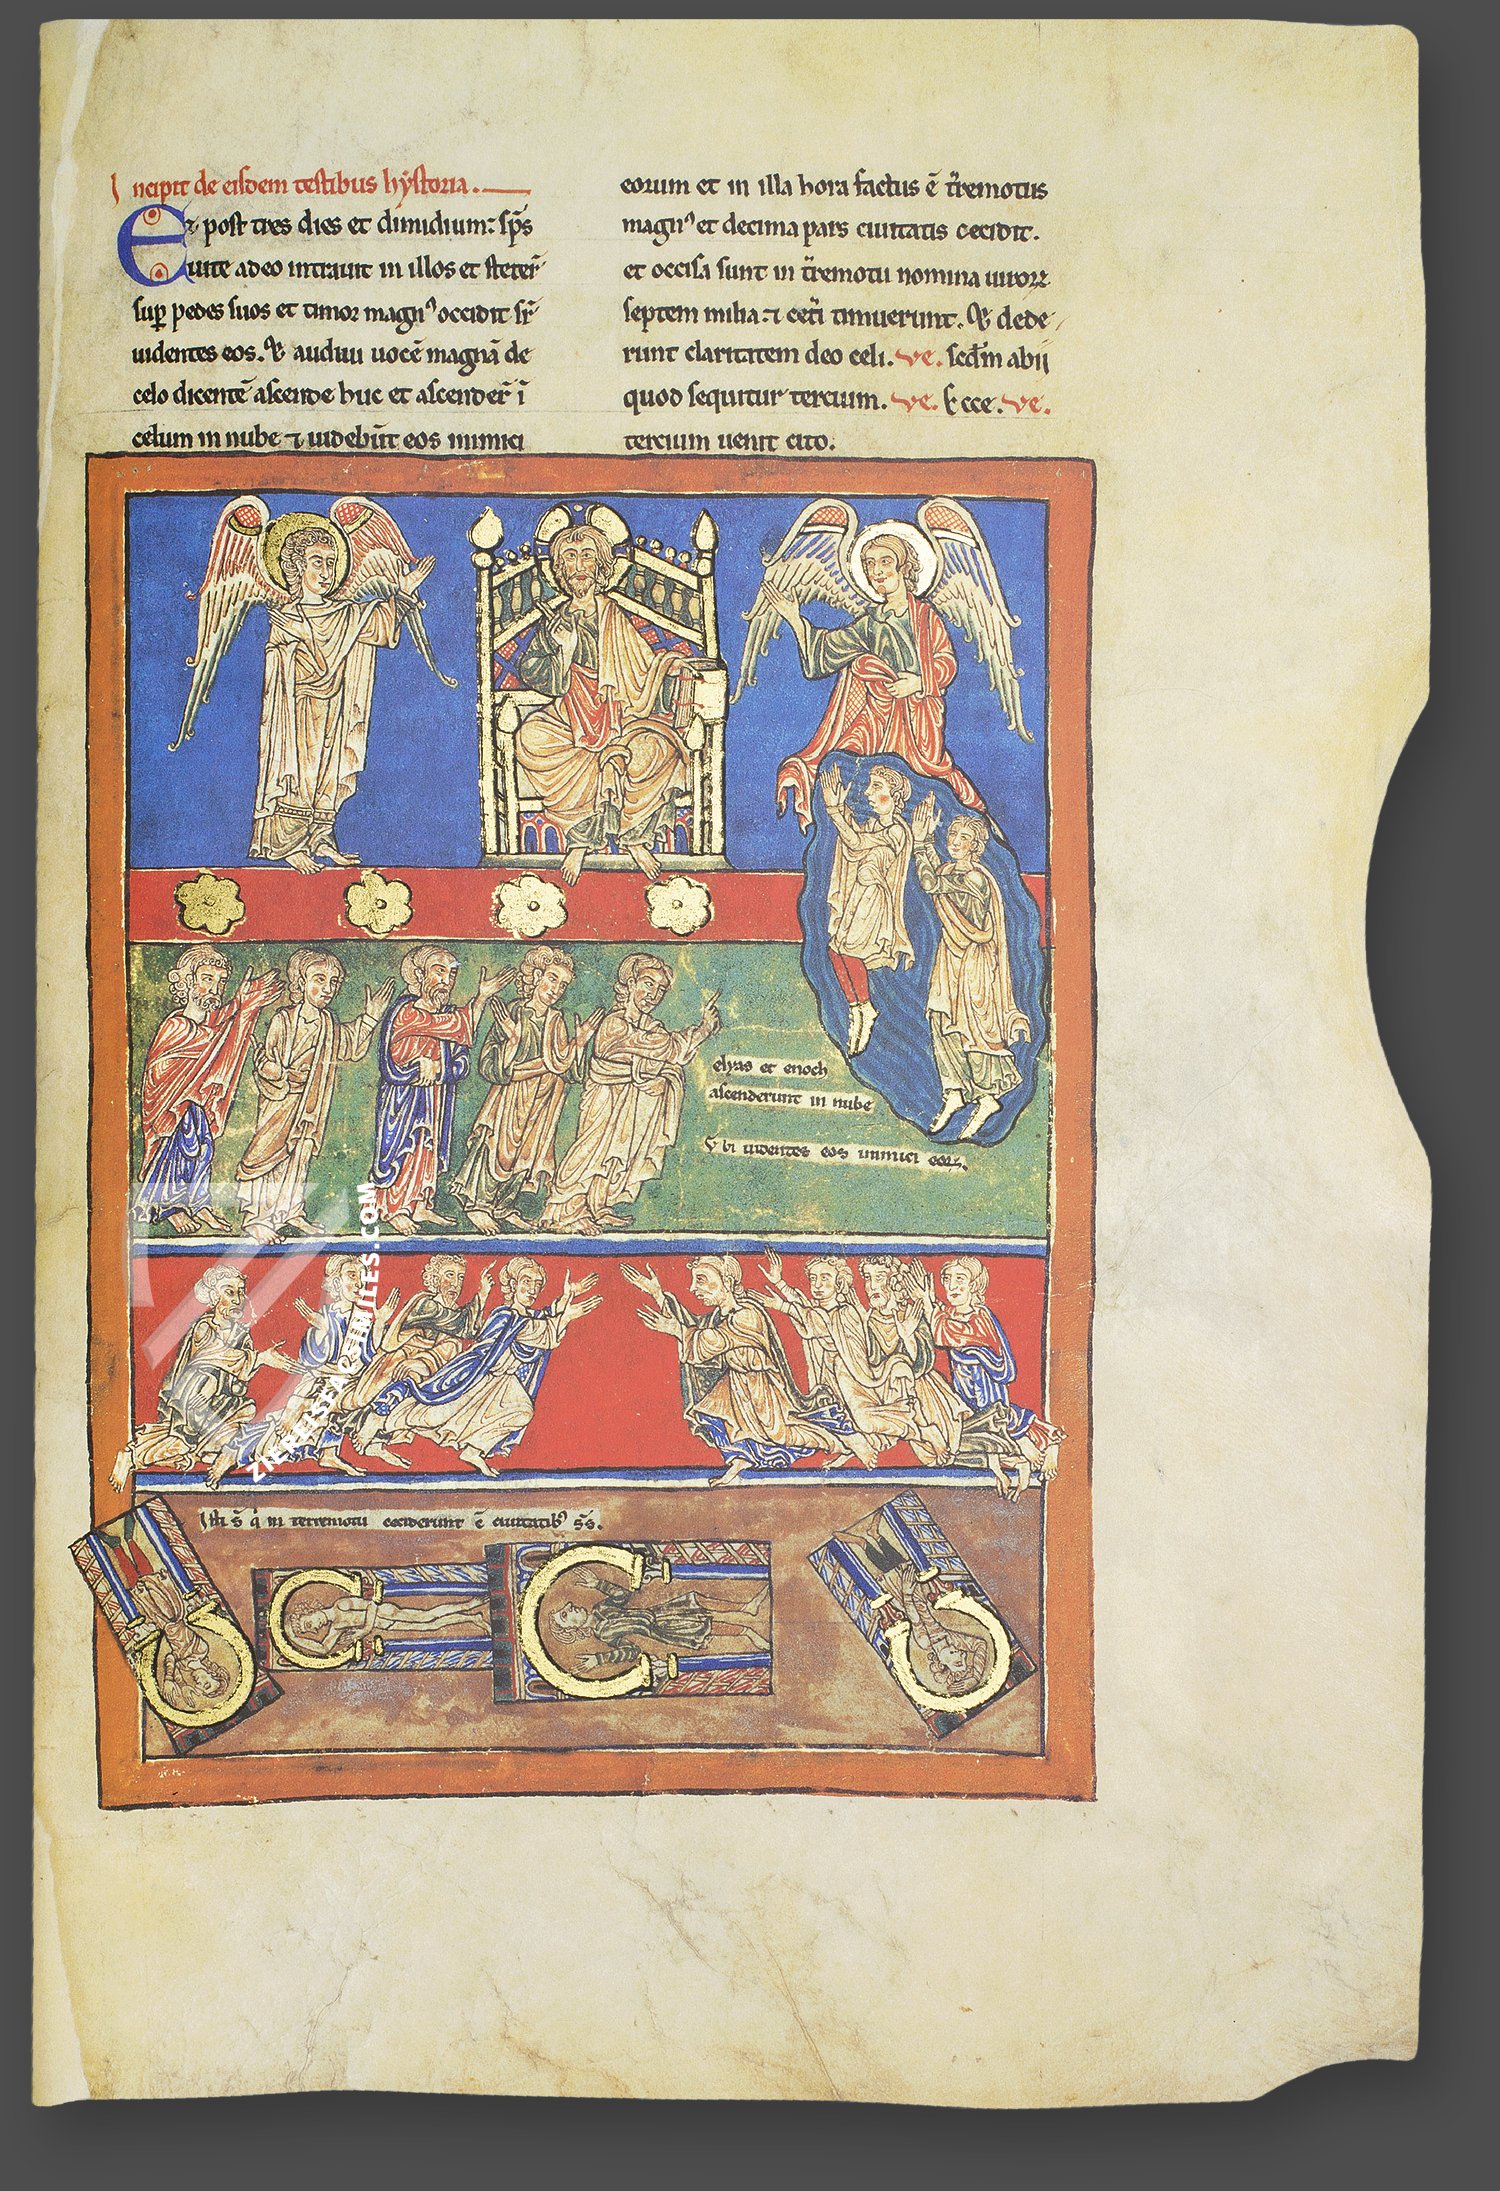 Incipit de eisdem testibus hystoria.
Et post tres dies et dimidium: sp̄s
uite adeo intrauit in illos et steter̄
sup̱ pedes suos et timor magnꝰ occidit sr̄
uidentes eos. Et audiui uocē magnā de
celo dicentē ascende huc et ascender̄ ī
celum in nube ⁊ uideb̄ut eos inimici
eorum et in illa hora factus ē t̄remotus
magnꝰ et decima pars ciuitatis cecidit.
et occisa sunt in t̄remotu nomina uiroꝝ
septem milia: ⁊ cet̄i timuerunt. Et dede
runt claritatem deo celi. ve. sc̄dm abii
quod sequitur tercium. ve. Ecce. ve.
tercium uenit cito.
elyas et enoch
ascenderunt in nube
Vbi uidentes eos inimici eoꝝ.
Isti s̄ q̄ in terremotu ceciderunt ī ciuitatibꝰ s̄s.
ZIEREISFACSIMILES.COM